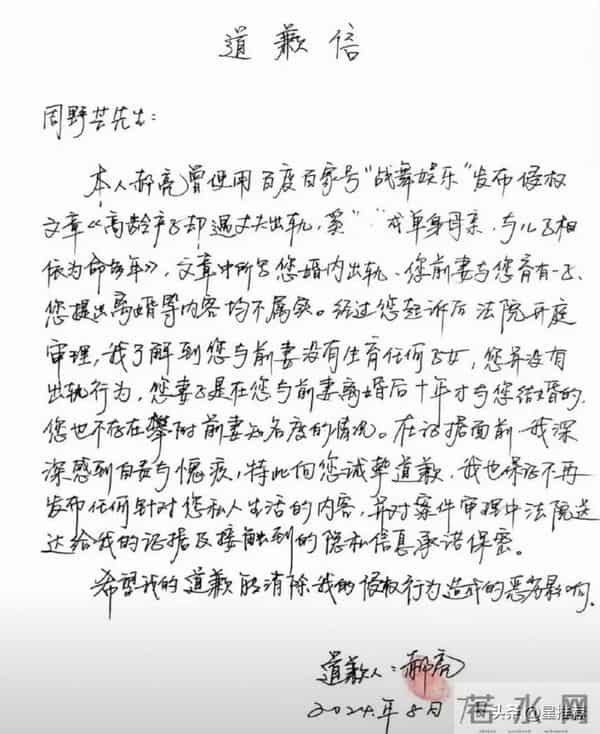 道歉信
周野芒先生：
本人郝亮曾使用百度百家号“战舞娱乐”发布侵权
文章《高龄产子却遇丈夫出轨，奚 成单身母亲，与儿子相
依为命多年》，文章中所写您婚内出轨、您前妻与您育有一子、
您提出离婚等内容均不属实。经过您起诉后法院开庭
审理，我了解到您与前妻没有生育任何子女，您并没有
出轨行为，您妻子是在您与前妻离婚后十年才与您结婚的，
您也不存在攀附前妻知名度的情况。在证据面前我深
深感到自责与愧疚，特此向您诚挚道歉，我也保证不再
发布任何针对您私人生活的内容，并对案件审理中法院送
达给我的证据及接触到的隐私信息承诺保密。
希望我的道歉能消除我的侵权行为造成的恶劣影响。
道歉人：郝亮
2024年8月
若水网
头条@星推荐